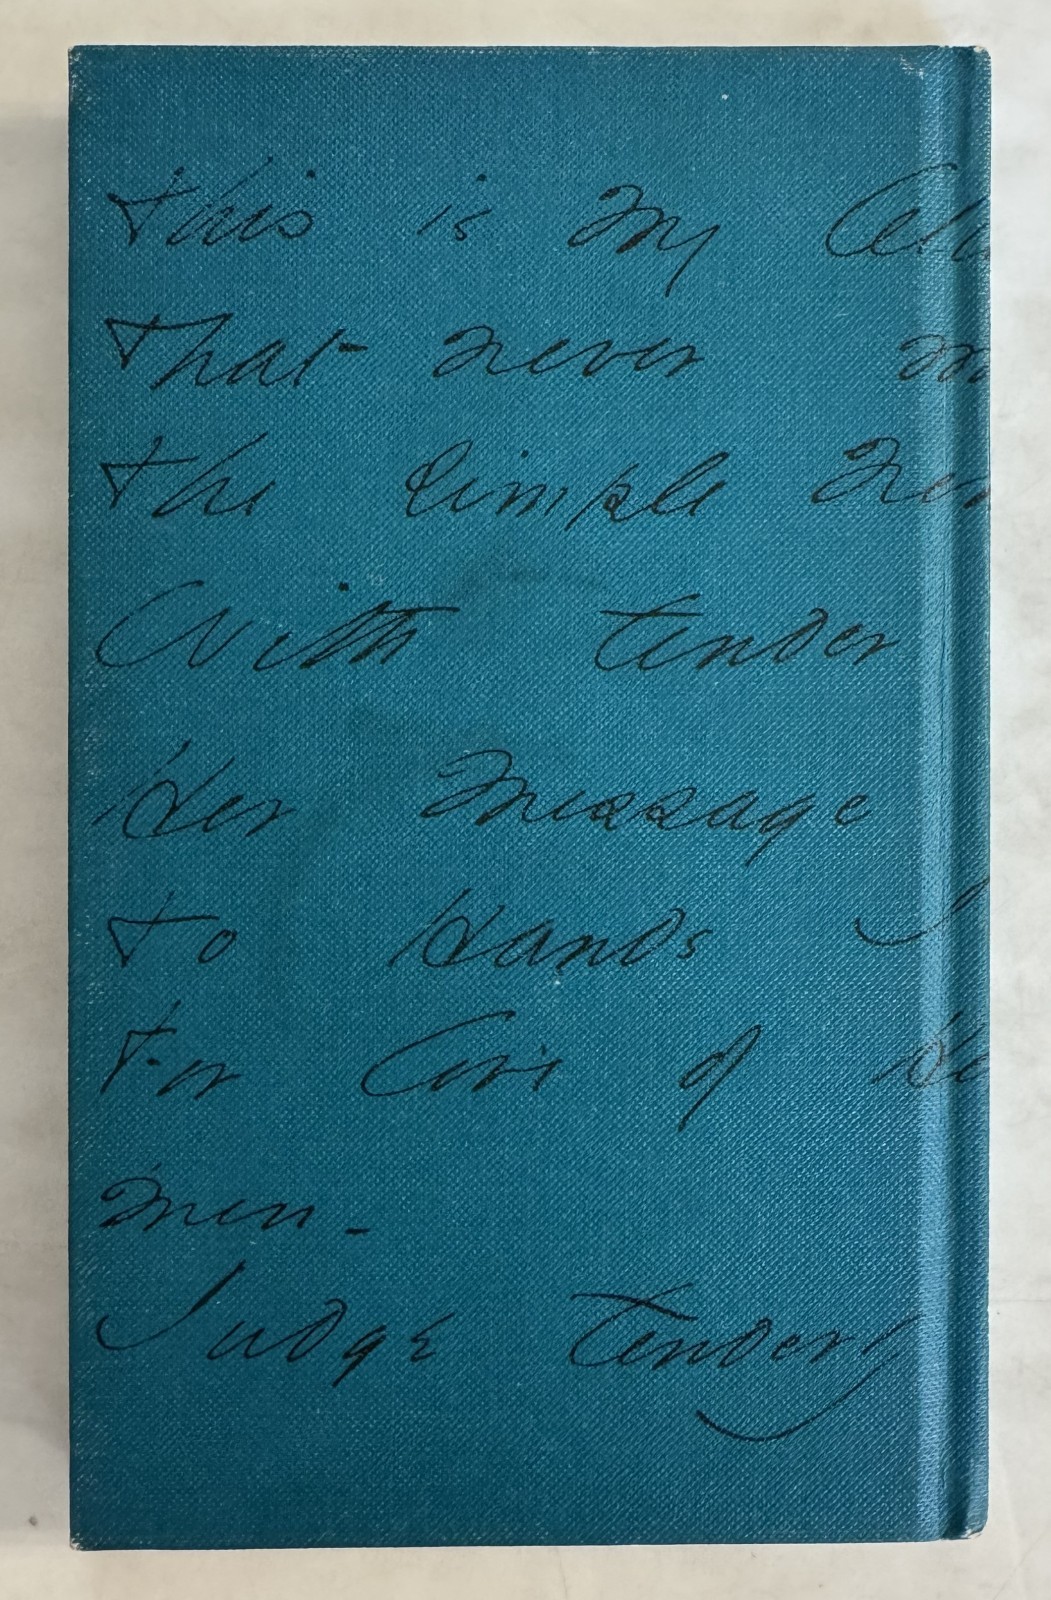 this is my
that never
the simple
With tender
Her Message
To Hands
For Love of
men-
Judge tenderly